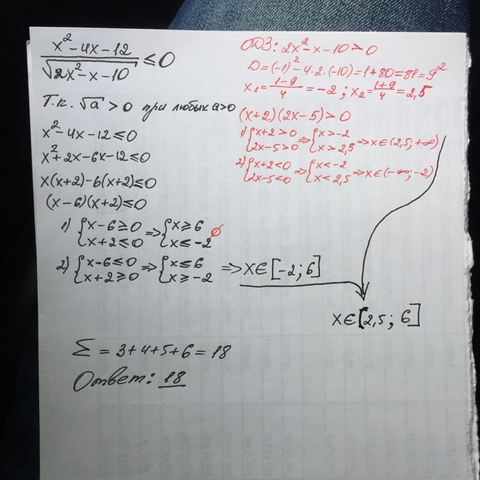 x² - 4x - 12 / √(2x² - x - 10) ≤ 0
Т.к. √a > 0 при любых a>0
x² - 4x - 12 ≤ 0
x² + 2x - 6x - 12 ≤ 0
x(x+2) - 6(x+2) ≤ 0
(x-6)(x+2) ≤ 0
1) {x-6 ≥ 0 => {x ≥ 6
{x+2 ≤ 0 {x ≤ -2 ∅
2) {x-6 ≤ 0 => {x ≤ 6 => x∈[-2; 6]
{x+2 ≥ 0 {x ≥ -2
ОДЗ: 2x² - x - 10 > 0
D = (-1)² - 4·2·(-10) = 1 + 80 = 81 = 9²
x₂ = (1-9)/4 = -2; x₂ = (1+9)/4 = 2,5
(x+2)(2x-5) > 0
1) {x+2 > 0 => {x > -2
{2x-5 > 0 {x > 2,5 => x∈(2,5; +∞)
2) {x+2 < 0 => {x < -2
{2x-5 < 0 {x < 2,5 => x∈(-∞; -2)
x∈[2,5; 6]
Σ = 3+4+5+6 = 18
Ответ: 18